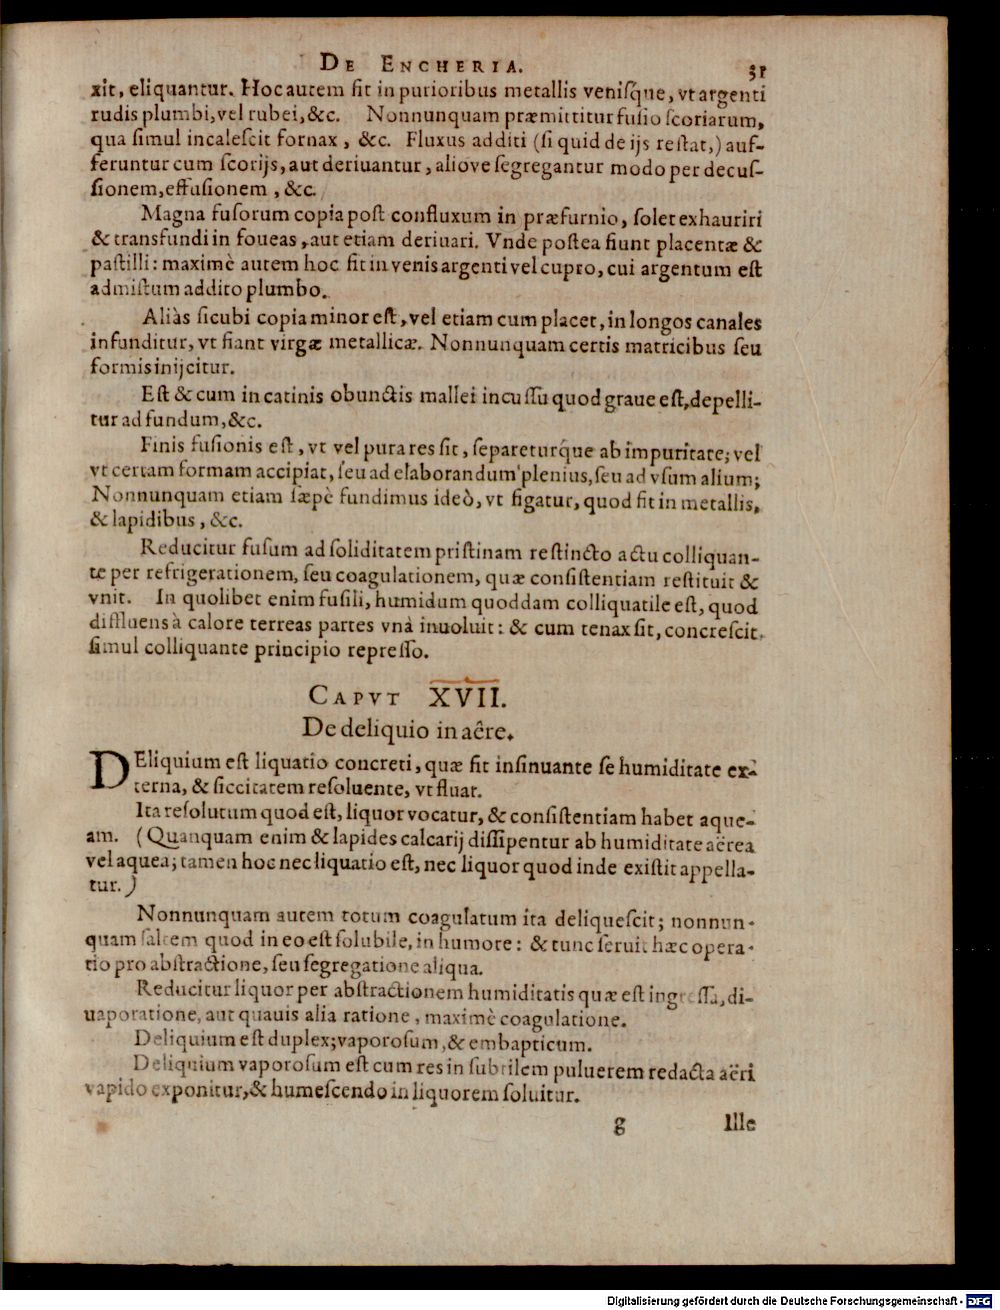 De Encheria. 31
xit, eliquantur. Hoc autem fit in purioribus metallis venisq́ue, vt argenti
rudis plumbi, vel rubei, &c. Nonnunquam præmittitur fusio scoriarum,
qua simul incalescit fornax, &c. Fluxus additi (si quid de ijs restat,) auf-
feruntur cum scorijs, aut deriuantur, aliove segregantur modo per decus-
sionem, effusionem, &c.
Magna fusorum copia post confluxum in præfurnio, solet exhauriri
& transfundi in foueas, aut etiam deriuari. Vnde postea fiunt placentæ &
pastilli: maximè autem hoc fit in venis argenti vel cupro, cui argentum est
admistum addito plumbo.
Aliàs sicubi copia minor est, vel etiam cum placet, in longos canales
infunditur, vt fiant virgæ metallicæ. Nonnunquam certis matricibus seu
formis inijcitur.
Est & cum in catinis obunctis mallei incussu quod graue est, depelli-
tur ad fundum, &c.
Finis fusionis est, vt vel pura res fit, separeturq́ue ab impuritate; vel
vt certam formam accipiat, seu ad elaborandum plenius, seu ad vsum alium;
Nonnunquam etiam sæpè fundimus ideò, vt figatur, quod fit in metallis,
& lapidibus, &c.
Reducitur fusum ad soliditatem pristinam restincto actu colliquan-
te per refrigerationem, seu coagulationem, quæ consistentiam restituit &
vnit. In quolibet enim fusili, humidum quoddam colliquatile est, quod
diffluens à calore terreas partes vnà inuoluit: & cum tenax sit, concrescit
simul colliquante principio represso.
Capvt XVII.
De deliquio in aëre.
DEliquium est liquatio concreti, quæ fit insinuante se humiditate ex-
terna, & siccitatem resoluente, vt fluat.
Ita resolutum quod est, liquor vocatur, & consistentiam habet aque-
am. (Quanquam enim & lapides calcarij dissipentur ab humiditate aërea
vel aquea; tamen hoc nec liquatio est, nec liquor quod inde existit appella-
tur.)
Nonnunquam autem totum coagulatum ita deliquescit; nonnun-
quam saltem quod in eo est solubile, in humore: & tunc seruit hæc opera-
tio pro abstractione, seu segregatione aliqua.
Reducitur liquor per abstractionem humiditatis quæ est ingressa, di-
uaporatione, aut quauis alia ratione, maximè coagulatione.
Deliquium est duplex; vaporosum, & embapticum.
Deliquium vaporosum est cum res in subtilem puluerem redacta aëri
vapido exponitur, & humescendo in liquorem soluitur.
g Ille
Digitalisierung gefördert durch die Deutsche Forschungsgemeinschaft - DFG